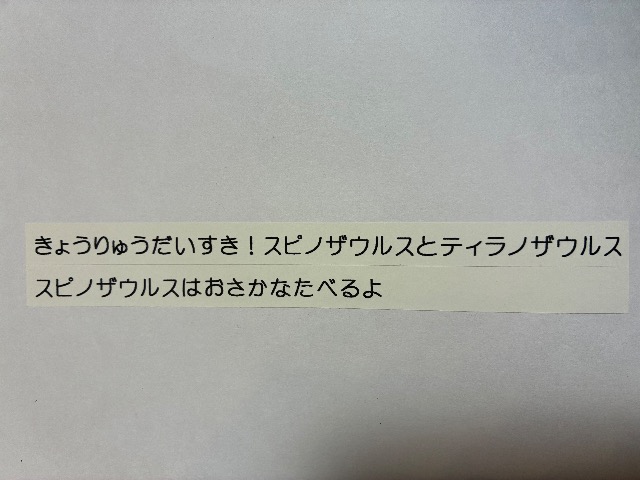 きょうりゅうだいすき！スピノザウルスとティラノザウルス
スピノザウルスはおさかなたべるよ